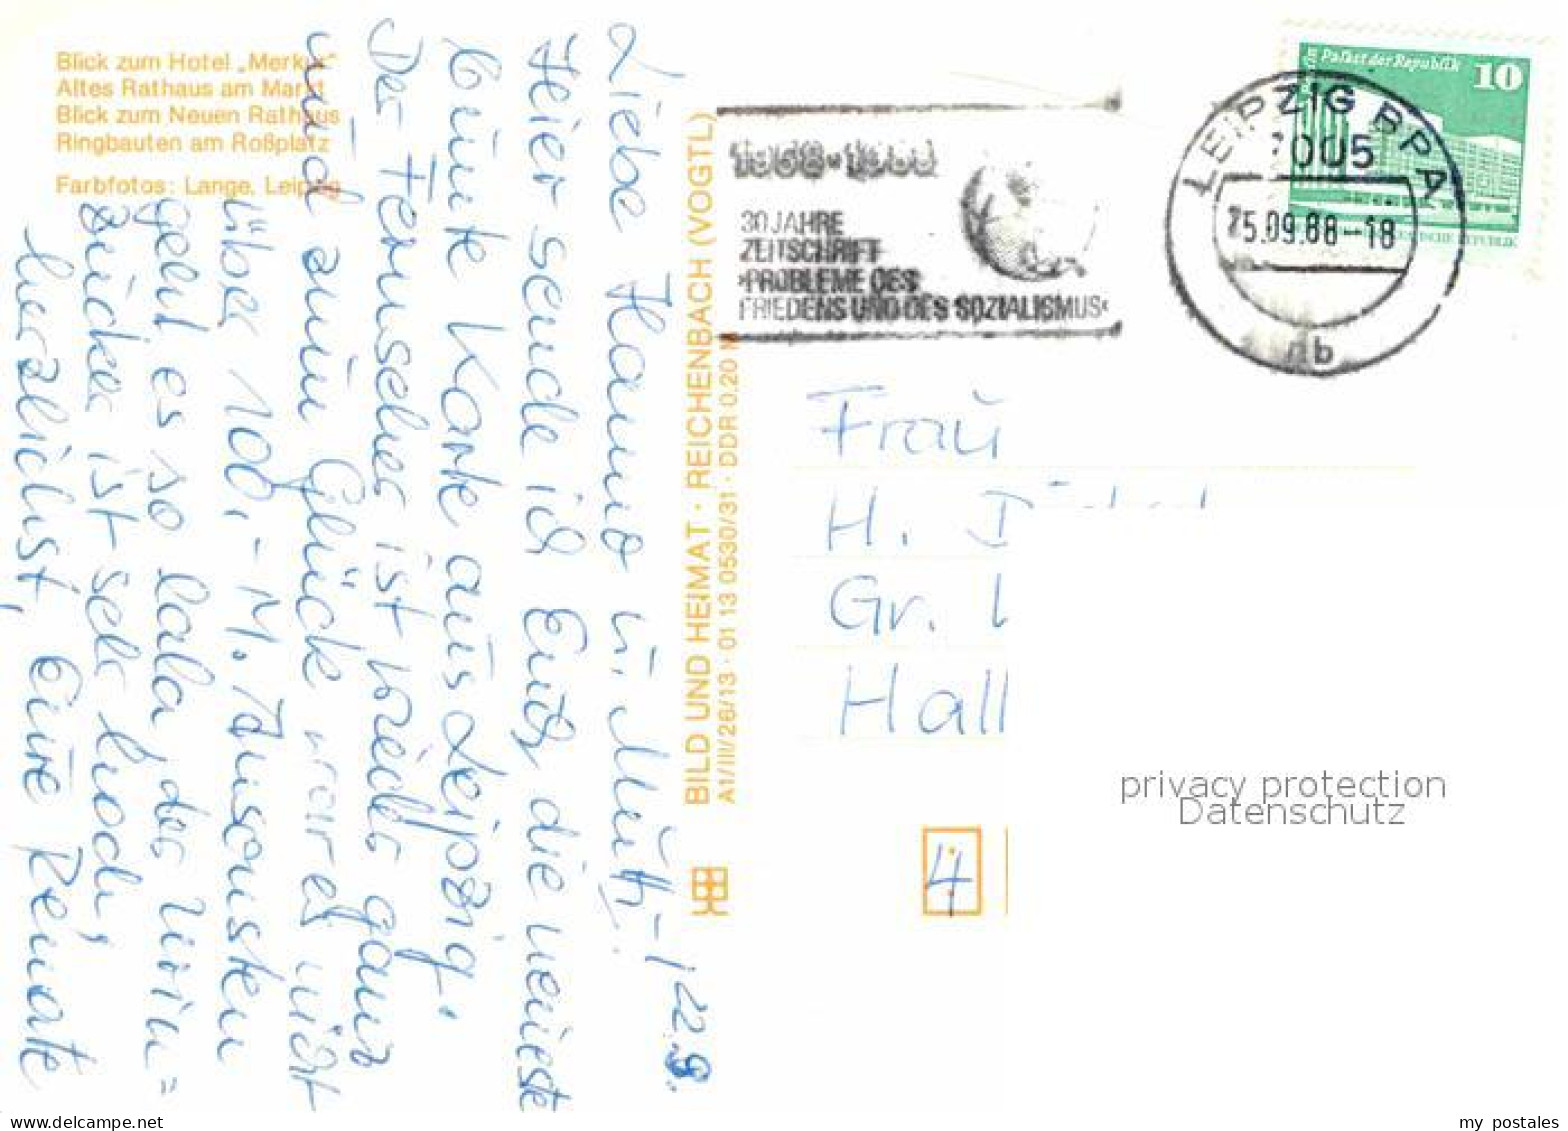 Blick zum Hotel „Merkur“
Altes Rathaus am Markt
Blick zum Neuen Rathaus
Ringbauten am Roßplatz
Farbfotos: Lange, Leipzig
22.9.
Liebe Hanno u. Mutti!
Hier sende ich Euch die neueste
bunte Karte aus Leipzig.
Der Fernseher ist wieder ganz
und zum Glück war es nicht
über 100,- M. Ansonsten
geht es so lala, der Urin=
zucker ist sehr hoch,
herzlichst, Eure Renate
BILD UND HEIMAT · REICHENBACH (VOGTL)
A1/III/26/13 · 01 13 0530/31 · DDR 0.20 M
1958-1988
30 JAHRE
ZEITSCHRIFT
›PROBLEME DES
FRIEDENS UND DES SOZIALISMUS‹
LEIPZIG BPA
7005
25.09.88-18
nb
Palast der Republik
10
Frau
H.
Gr.
Hall
4
privacy protection
Datenschutz
www.delcampe.net
my postales